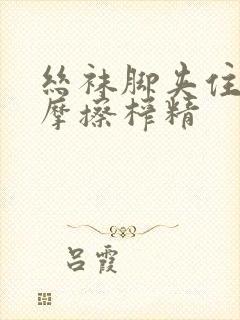 丝袜脚夹住
摩擦榨精
吕霞